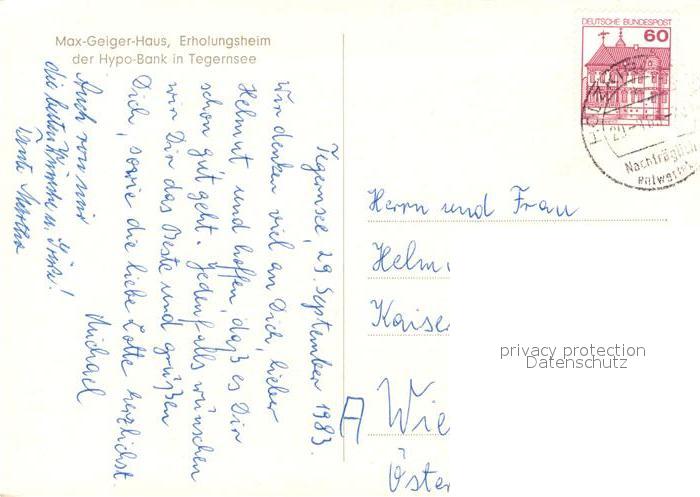 Max-Geiger-Haus, Erholungsheim
der Hypo-Bank in Tegernsee
Tegernsee, 29. September 1983.
Wir denken viel an Dich, lieber
Helmut und hoffen, daß es Dir
schon gut geht. Jedenfalls wünschen
wir Dir das Beste und grüßen
Dich, sowie die liebe Lotte herzlichst.
Michael
Auch von mir
die besten Wünsche u. Grüße!
Tante Martha
DEUTSCHE BUNDESPOST
60
Nachträglich
entwertet
Herrn und Frau
Helm
Kaise
A Wie
Öster
privacy protection
Datenschutz